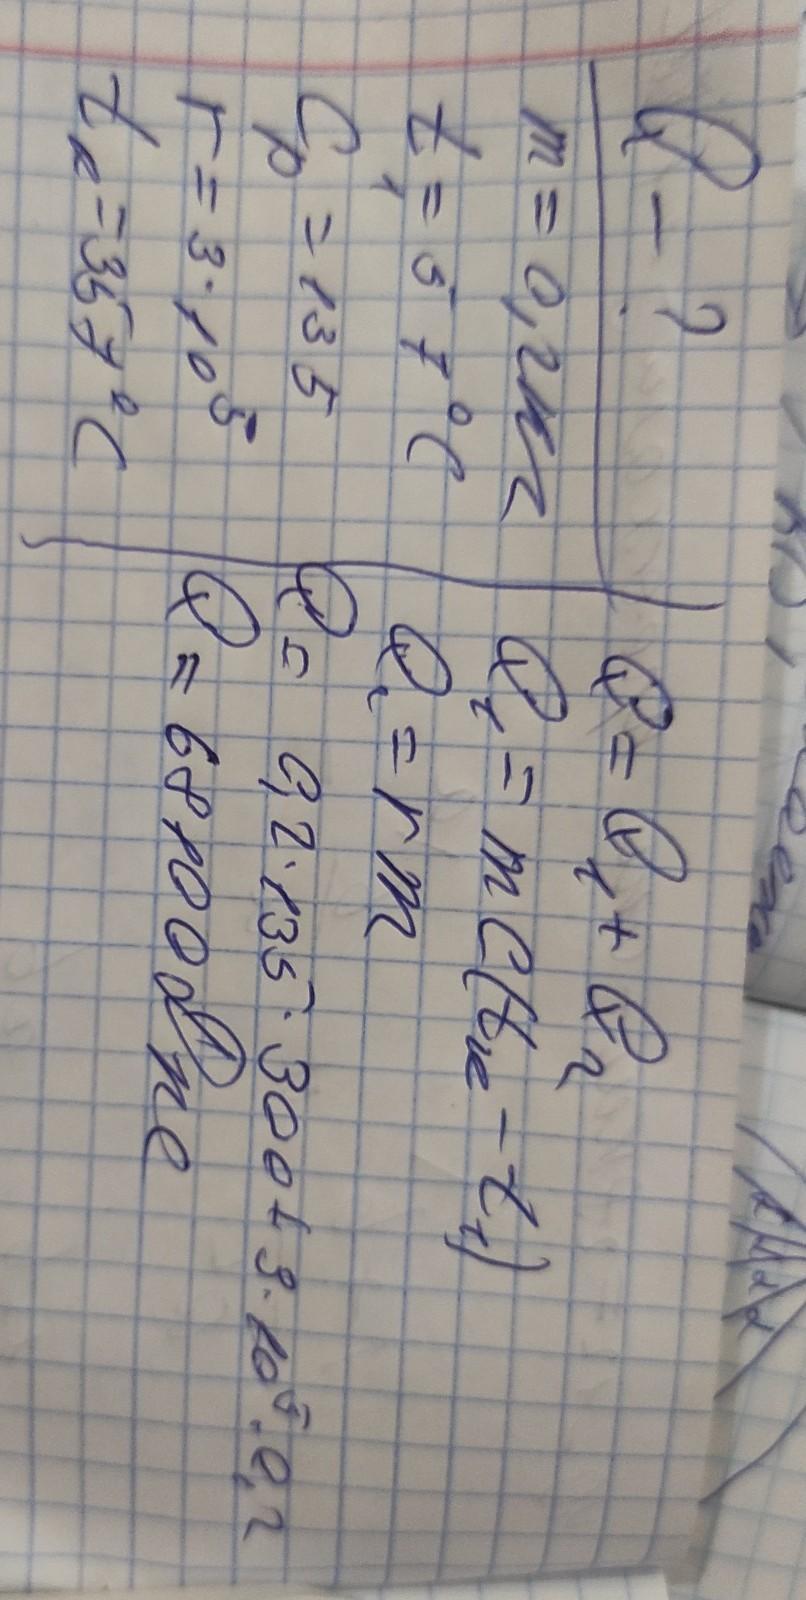 Q - ?
m = 0,2 кг
t₁ = 57°C
Cр = 135
r = 3·10⁵
tк = 357°C
Q = Q₁ + Q₂
Q₁ = mc(tк - t₁)
Q₂ = rm
Q = 0,2·135·300 + 3·10⁵·0,2
Q = 68100 Дже